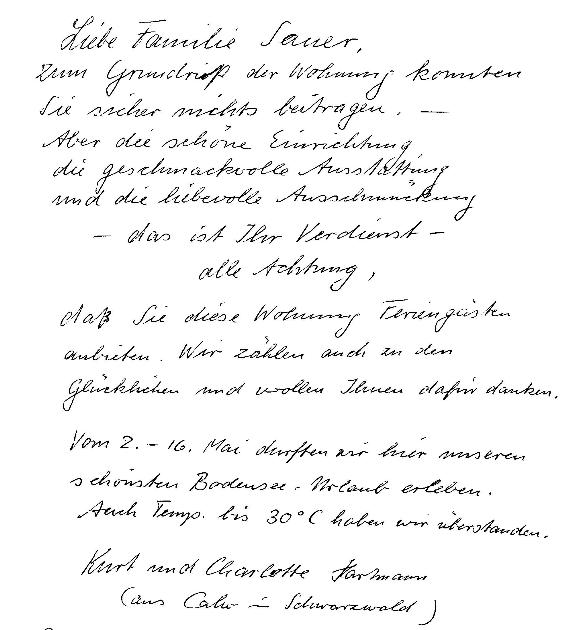 Liebe Familie Sauer,
Zum Grundriß der Wohnung konnten
Sie sicher nichts beitragen. —
Aber die schöne Einrichtung
die geschmackvolle Ausstattung
und die liebevolle Ausschmückung
– das ist Ihr Verdienst –
alle Achtung,
daß Sie diese Wohnung Feriengästen
anbieten. Wir zählen auch zu den
Glücklichen und wollen Ihnen dafür danken.
Vom 2. – 16. Mai durften wir hier unseren
schönsten Bodensee-Urlaub erleben.
Auch Temp. bis 30°C haben wir überstanden.
Kurt und Charlotte Hartmann
(aus Calw – Schwarzwald)